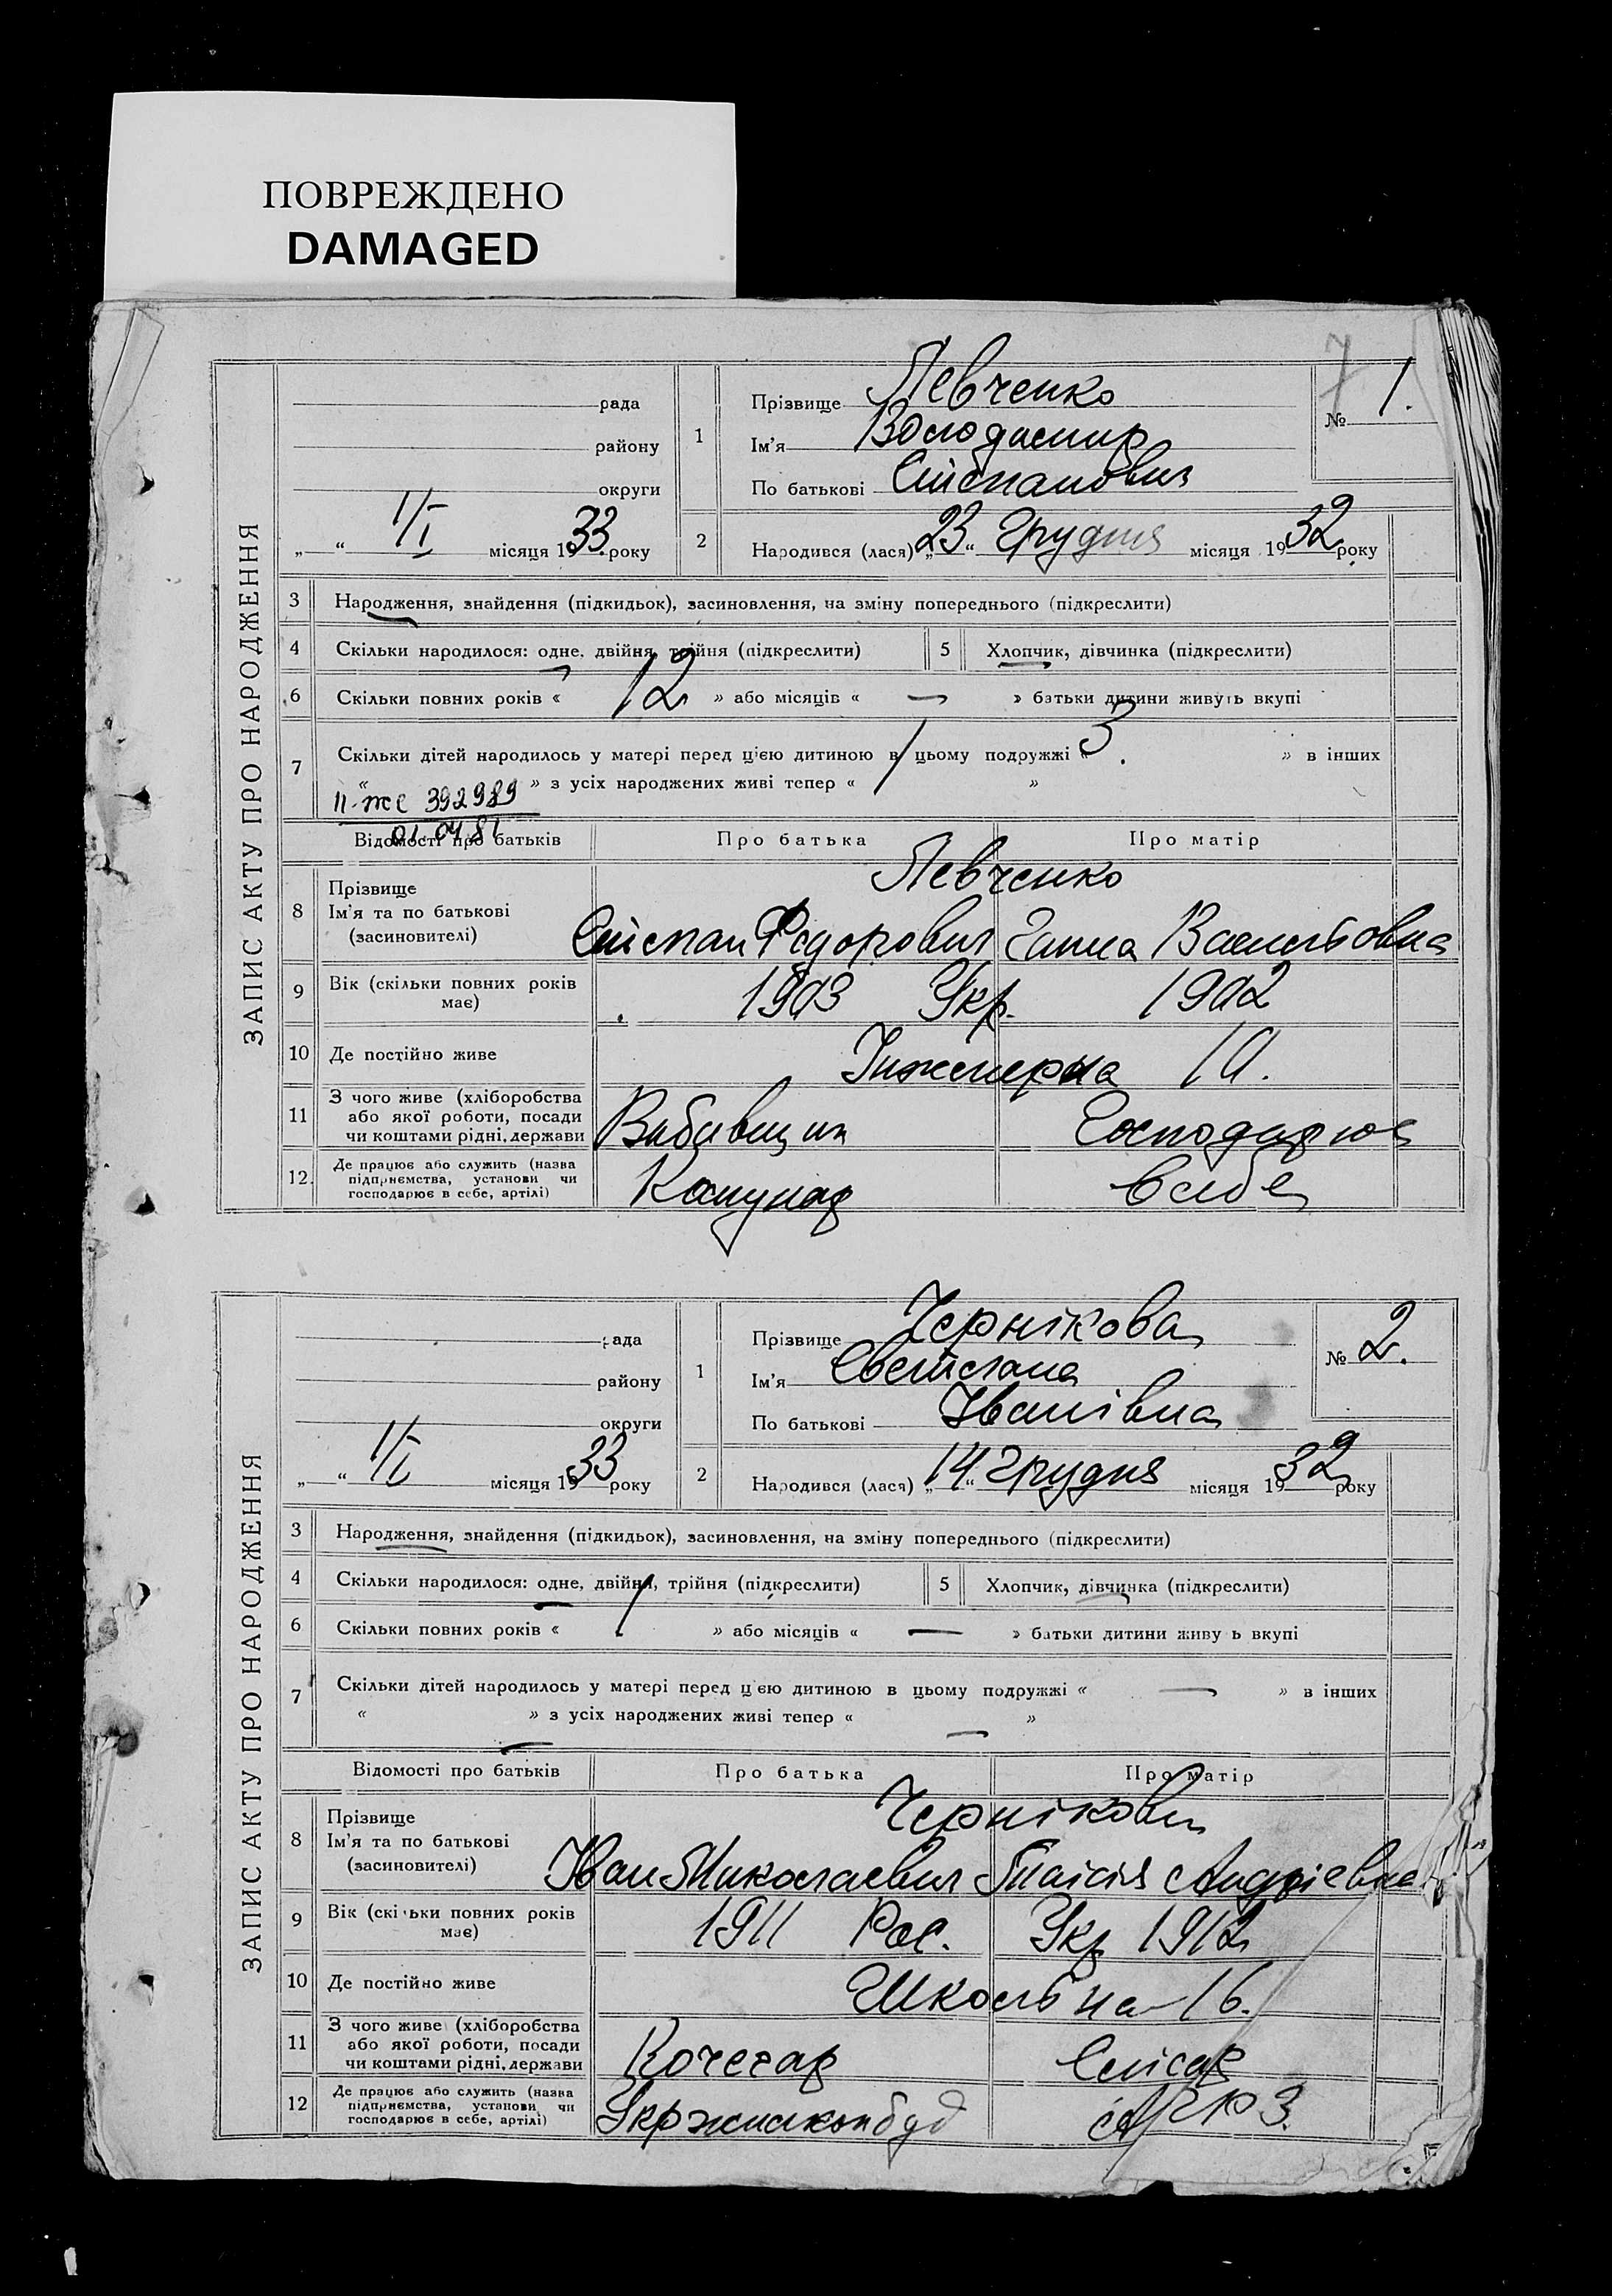 ПОВРЕЖДЕНО
DAMAGED
7
ЗАПИС АКТУ ПРО НАРОДЖЕННЯ
рада
району
округи
„ “ 1/I місяця 1933 року
1 Прізвище Левченко
Ім'я Володимир
По батькові Степанович
№ 1.
2 Народився (лася) „23“ Грудня місяця 1932 року
3 Народження, знайдення (підкидьок), засиновлення, на зміну попереднього (підкреслити)
4 Скільки народилося: одне, двійня, трійня (підкреслити) 5 Хлопчик, дівчинка (підкреслити)
6 Скільки повних років « 12 » або місяців « — » батьки дитини живуть вкупі
7 Скільки дітей народилось у матері перед цією дитиною в цьому подружжі « 3. » в інших
« » з усіх народжених живі тепер « »
II-ЖС 392989
01.04.81
Відомості про батьків Про батька Про матір
8 Прізвище Левченко
Ім'я та по батькові
(засновителі) Степан Федорович Ганна Васильовна
9 Вік (скільки повних років має) 1903 Укр. 1902
10 Де постійно живе Інженерна 10.
11 З чого живе (хліборобства
або якої роботи, посади
чи коштами рідні, держави Господарює
12. Де працює або служить (назва
підприємства, установи чи
господарює в себе, артілі) Комунар в себе
ЗАПИС АКТУ ПРО НАРОДЖЕННЯ
рада
району
округи
„ “ 1/I місяця 1933 року
1 Прізвище Чернікова
Ім'я Светлана
По батькові Іванівна
№ 2.
2 Народився (лася) „14“ Грудня місяця 1932 року
3 Народження, знайдення (підкидьок), засиновлення, на зміну попереднього (підкреслити)
4 Скільки народилося: одне, двійня, трійня (підкреслити) 5 Хлопчик, дівчинка (підкреслити)
6 Скільки повних років « 1 » або місяців « — » батьки дитини живу ь вкупі
7 Скільки дітей народилось у матері перед цією дитиною в цьому подружжі « — » в інших
« — » з усіх народжених живі тепер « — »
Відомості про батьків Про батька Про матір
8 Прізвище Чернікови
Ім'я та по батькові
(засиновителі) Іван Миколаевич Таісія Андріевна
9 Вік (скільки повних років має) 1911 Рос. Укр 1912
10 Де постійно живе Школьна 16.
11 З чого живе (хліборобства
або якої роботи, посади
чи коштами рідні, держави Кочегар Слюсар
12 Де працює або служить (назва
підприємства, установи чи
господарює в себе, артілі)